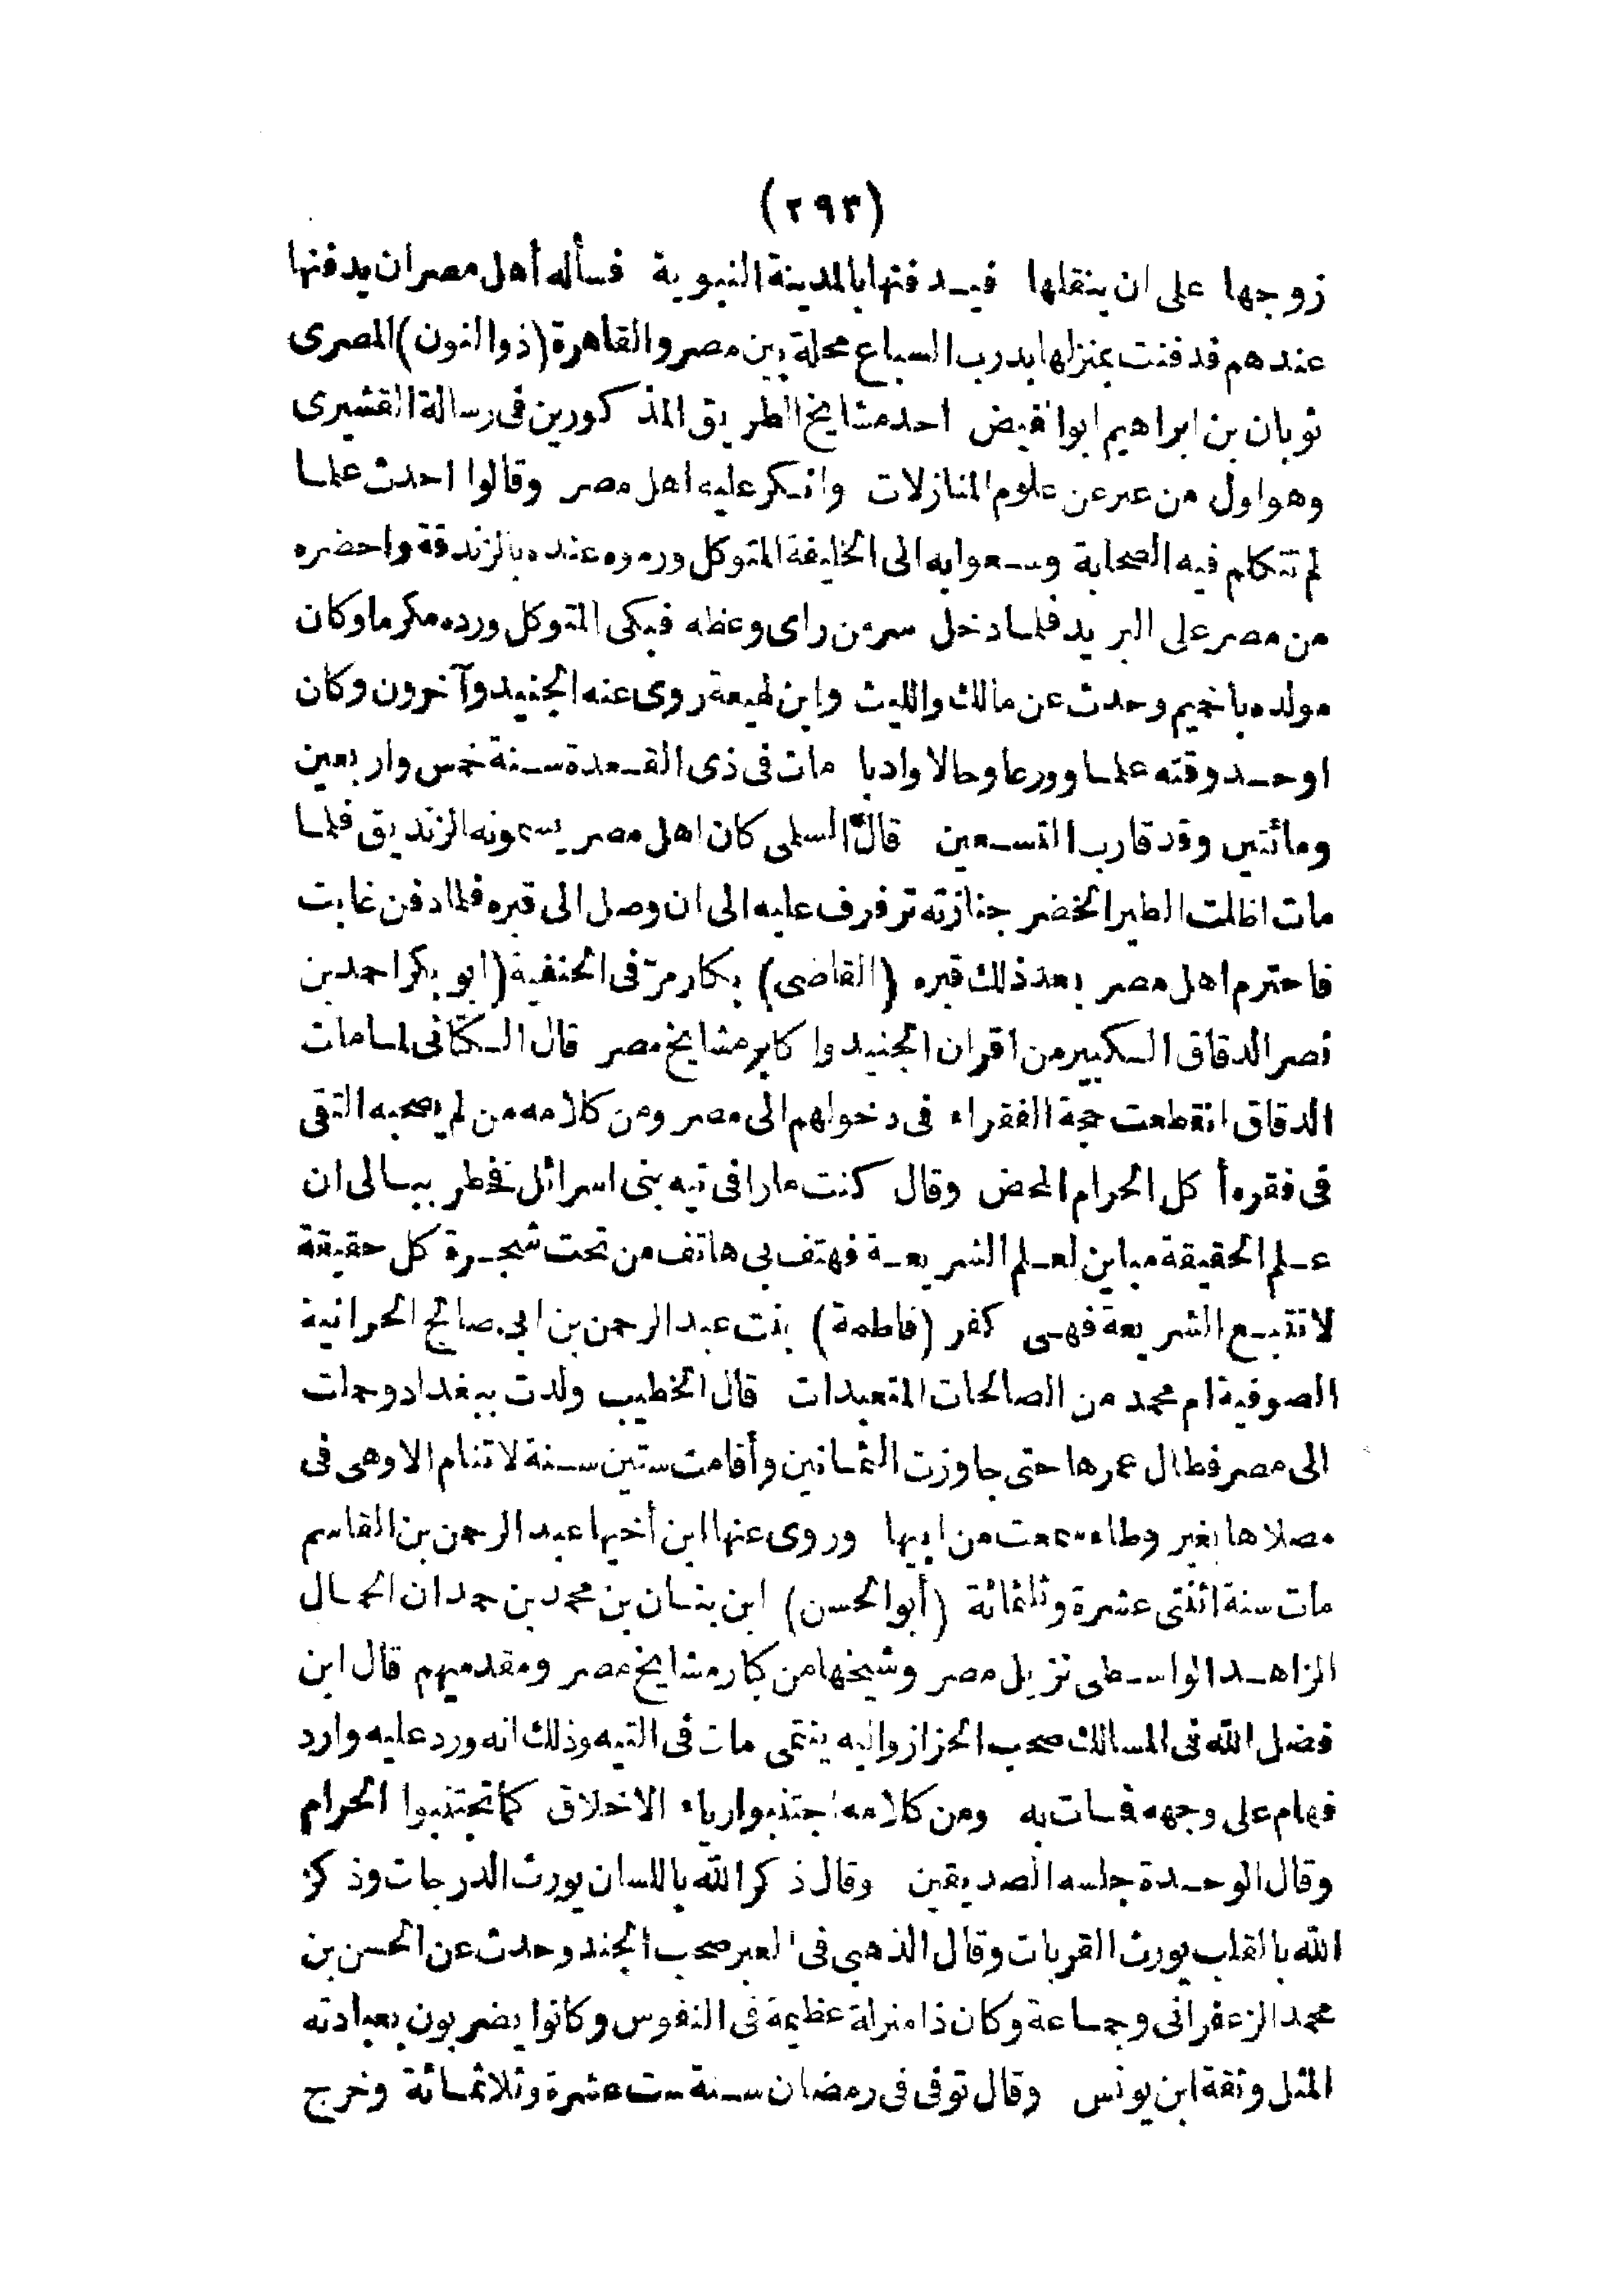 (٢٩٣)
زوجها على ان ينقلها فيدفنها بالمدينة النبوية فسأله أهل مصر ان يدفنها
عندهم فدفنت بمنزلها بدرب السباع محلة بين مصر والقاهرة (ذو النون) المصرى
ثوبان بن ابراهيم ابو الفيض احد مشايخ الطريق المذكورين فى رسالة القشيرى
وهو اول من عبر عن علوم المنازلات وانكر عليه اهل مصر وقالوا احدث علما
لم تتكلم فيه الصحابة وسعوا به الى الخليفة المتوكل ورموه عنده بالزندقة واحضره
من مصر على البريد فلما دخل سر من راى وعظه فبكى المتوكل ورده مكرما وكان
مولده باخميم وحدث عن مالك والليث وابن لهيعة روى عنه الجنيد وآخرون وكان
اوحد وقته علما وورعا وحالا وادبا مات فى ذى القعدة سنة خمس واربعين
ومائتين وقد قارب التسعين قال السلمى كان اهل مصر يسمونه الزنديق فلما
مات اظلت الطير الخضر جنازته ترفرف عليه الى ان وصل الى قبره فلما دفن غابت
فاحترم اهل مصر بعد ذلك قبره (القاضى) بكار مرّ فى الحنفية (ابو بكر احمد بن
نصر الدقاق الكبير من اقران الجنيد واكابر مشايخ مصر قال الكتانى لما مات
الدقاق انقطعت حجة الفقراء فى دخولهم الى مصر ومن كلامه من لم يصحبه التقى
فى فقره أكل الحرام المحض وقال كنت مارا فى تيه بنى اسرائل فخطر ببالى ان
علم الحقيقة مباين لعلم الشريعة فهتف بى هاتف من تحت شجرة كل حقيقة
لا تتبع الشريعة فهى كفر (فاطمة) بنت عبد الرحمن بن ابى صالح الحرانية
الصوفية ام محمد من الصالحات المتعبدات قال الخطيب ولدت ببغداد وحملت
الى مصر فطال عمرها حتى جاوزت الثمانين وأقامت ستين سنة لا تنام الا وهى فى
مصلاها بغير وطاء سمعت من ابيها وروى عنها ابن أخيها عبد الرحمن بن القاسم
مات سنة اثنتى عشرة وثلثمائة (أبو الحسن) ابن بنان بن محمد بن حمدان الحمال
الزاهد الواسطى نزيل مصر وشيخها من كبار مشايخ مصر ومقدميهم قال ابن
فضل الله فى المسالك صحب الخزاز واليه ينتمى مات فى التيه وذلك انه ورد عليه وارد
فهام على وجهه فمات به ومن كلامه اجتنبوا رياء الاخلاق كما تجتنبوا الحرام
وقال الوحدة جلسه الصديقين وقال ذكر الله باللسان يورث الدرجات وذكر
الله بالقلب يورث القربات وقال الذهبى فى العبر صحب الجند وحدث عن الحسن بن
محمد الزعفرانى وجماعة وكان ذا منزلة عظيمة فى النفوس وكانوا يضربون بعبادته
المثل وثقة ابن يونس وقال توفى فى رمضان سنة ست عشرة وثلاثمائة وخرج